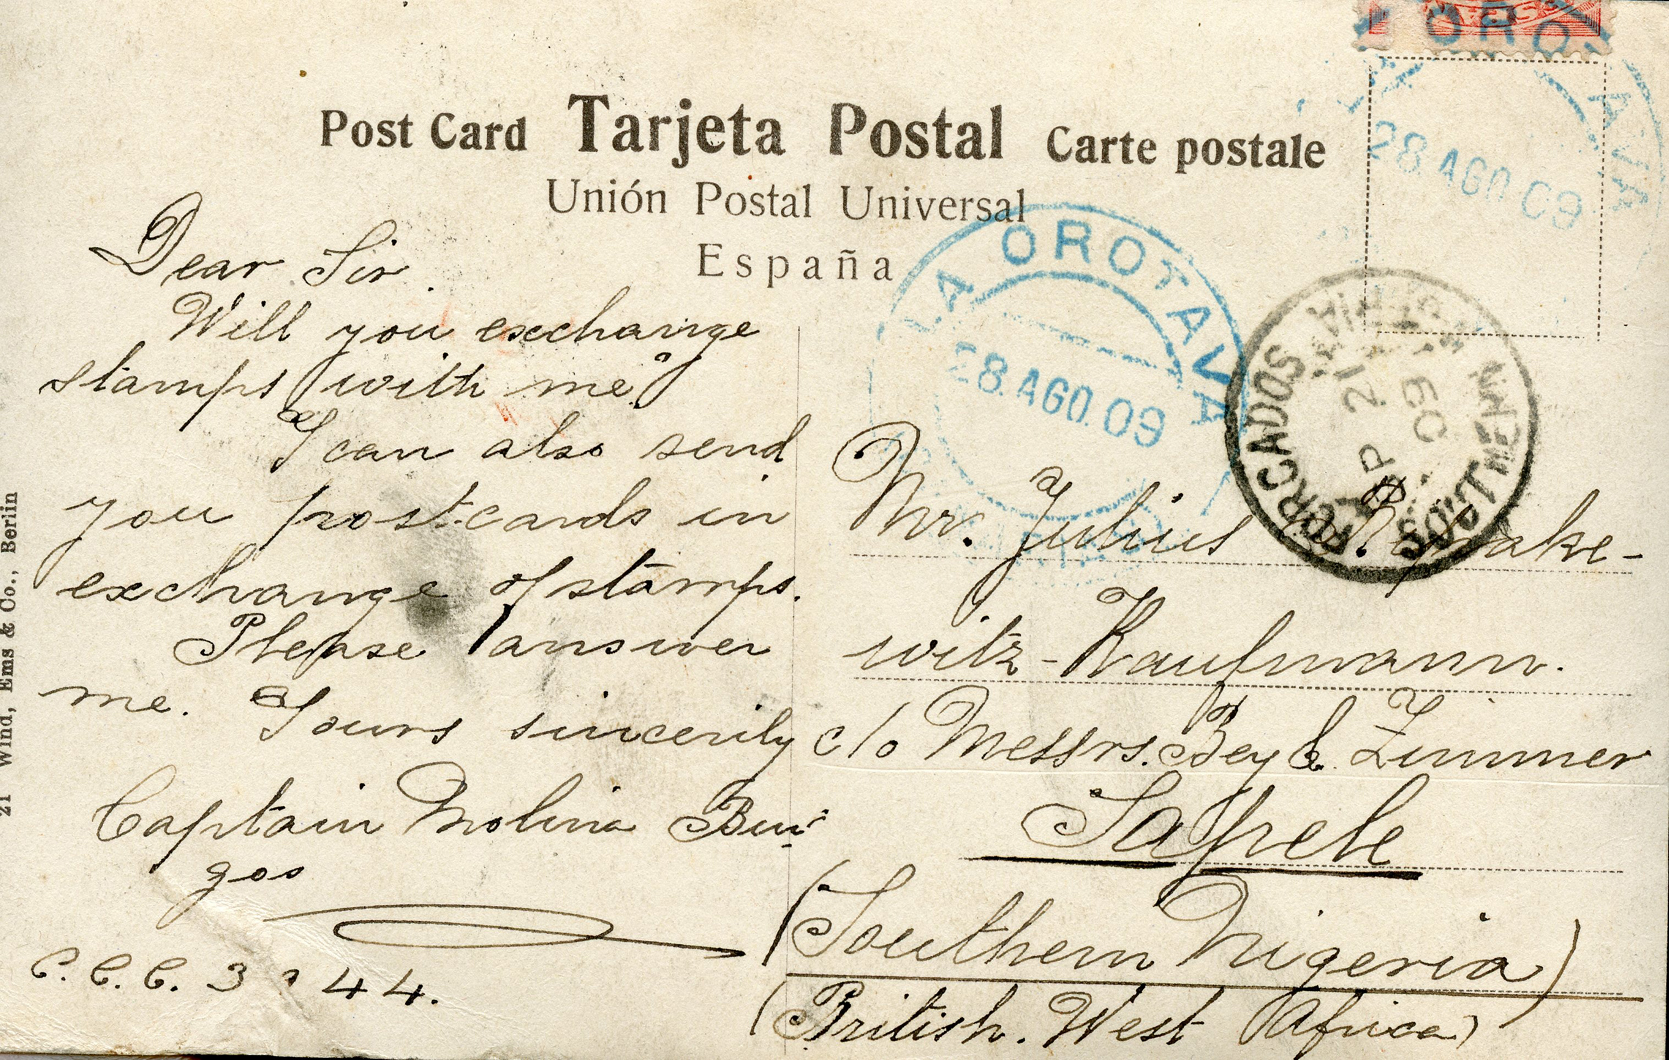 Post Card Tarjeta Postal Carte postale
Unión Postal Universal
España
LA OROTAVA
28.AGO.09
LA OROTAVA
28.AGO.09
FORCADOS
SOUTHERN NIGERIA
21 09
Dear Sir.
Will you exchange
stamps with me?
I can also send
you post-cards in
exchange of stamps.
Please answer
me. Yours sincerily
Captain Molina Bur-
gos
C. C. C. 3 44.
Mr. Julius
witz-Kaufmann.
c/o Messrs. Bey & Zimmer
Sapele
(Southern Nigeria)
(British. West Africa)
21 Wind, Ems & Co., Berlin